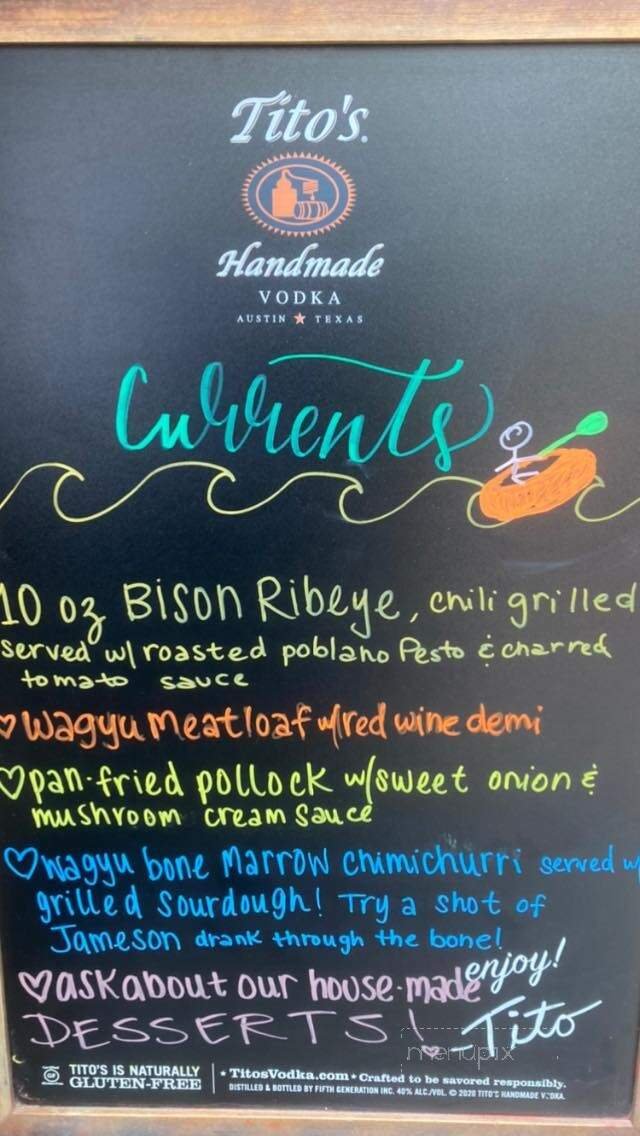 Tito's
Handmade
VODKA
AUSTIN ★ TEXAS
Currents
10 oz Bison Ribeye, chili grilled
served w/ roasted poblano Pesto & charred
tomato sauce
♡ Wagyu Meatloaf w/ red wine demi
♡ pan-fried pollock w/ sweet onion &
mushroom cream sauce
♡ Wagyu bone Marrow chimichurri served w/
grilled Sourdough! Try a shot of
Jameson drank through the bone!
♡ ask about our house-made
DESSERTS!
enjoy!
-Tito
menupix
GF
TITO'S IS NATURALLY
GLUTEN-FREE
• TitosVodka.com • Crafted to be savored responsibly.
DISTILLED & BOTTLED BY FIFTH GENERATION INC. 40% ALC./VOL. © 2020 TITO'S HANDMADE VODKA.